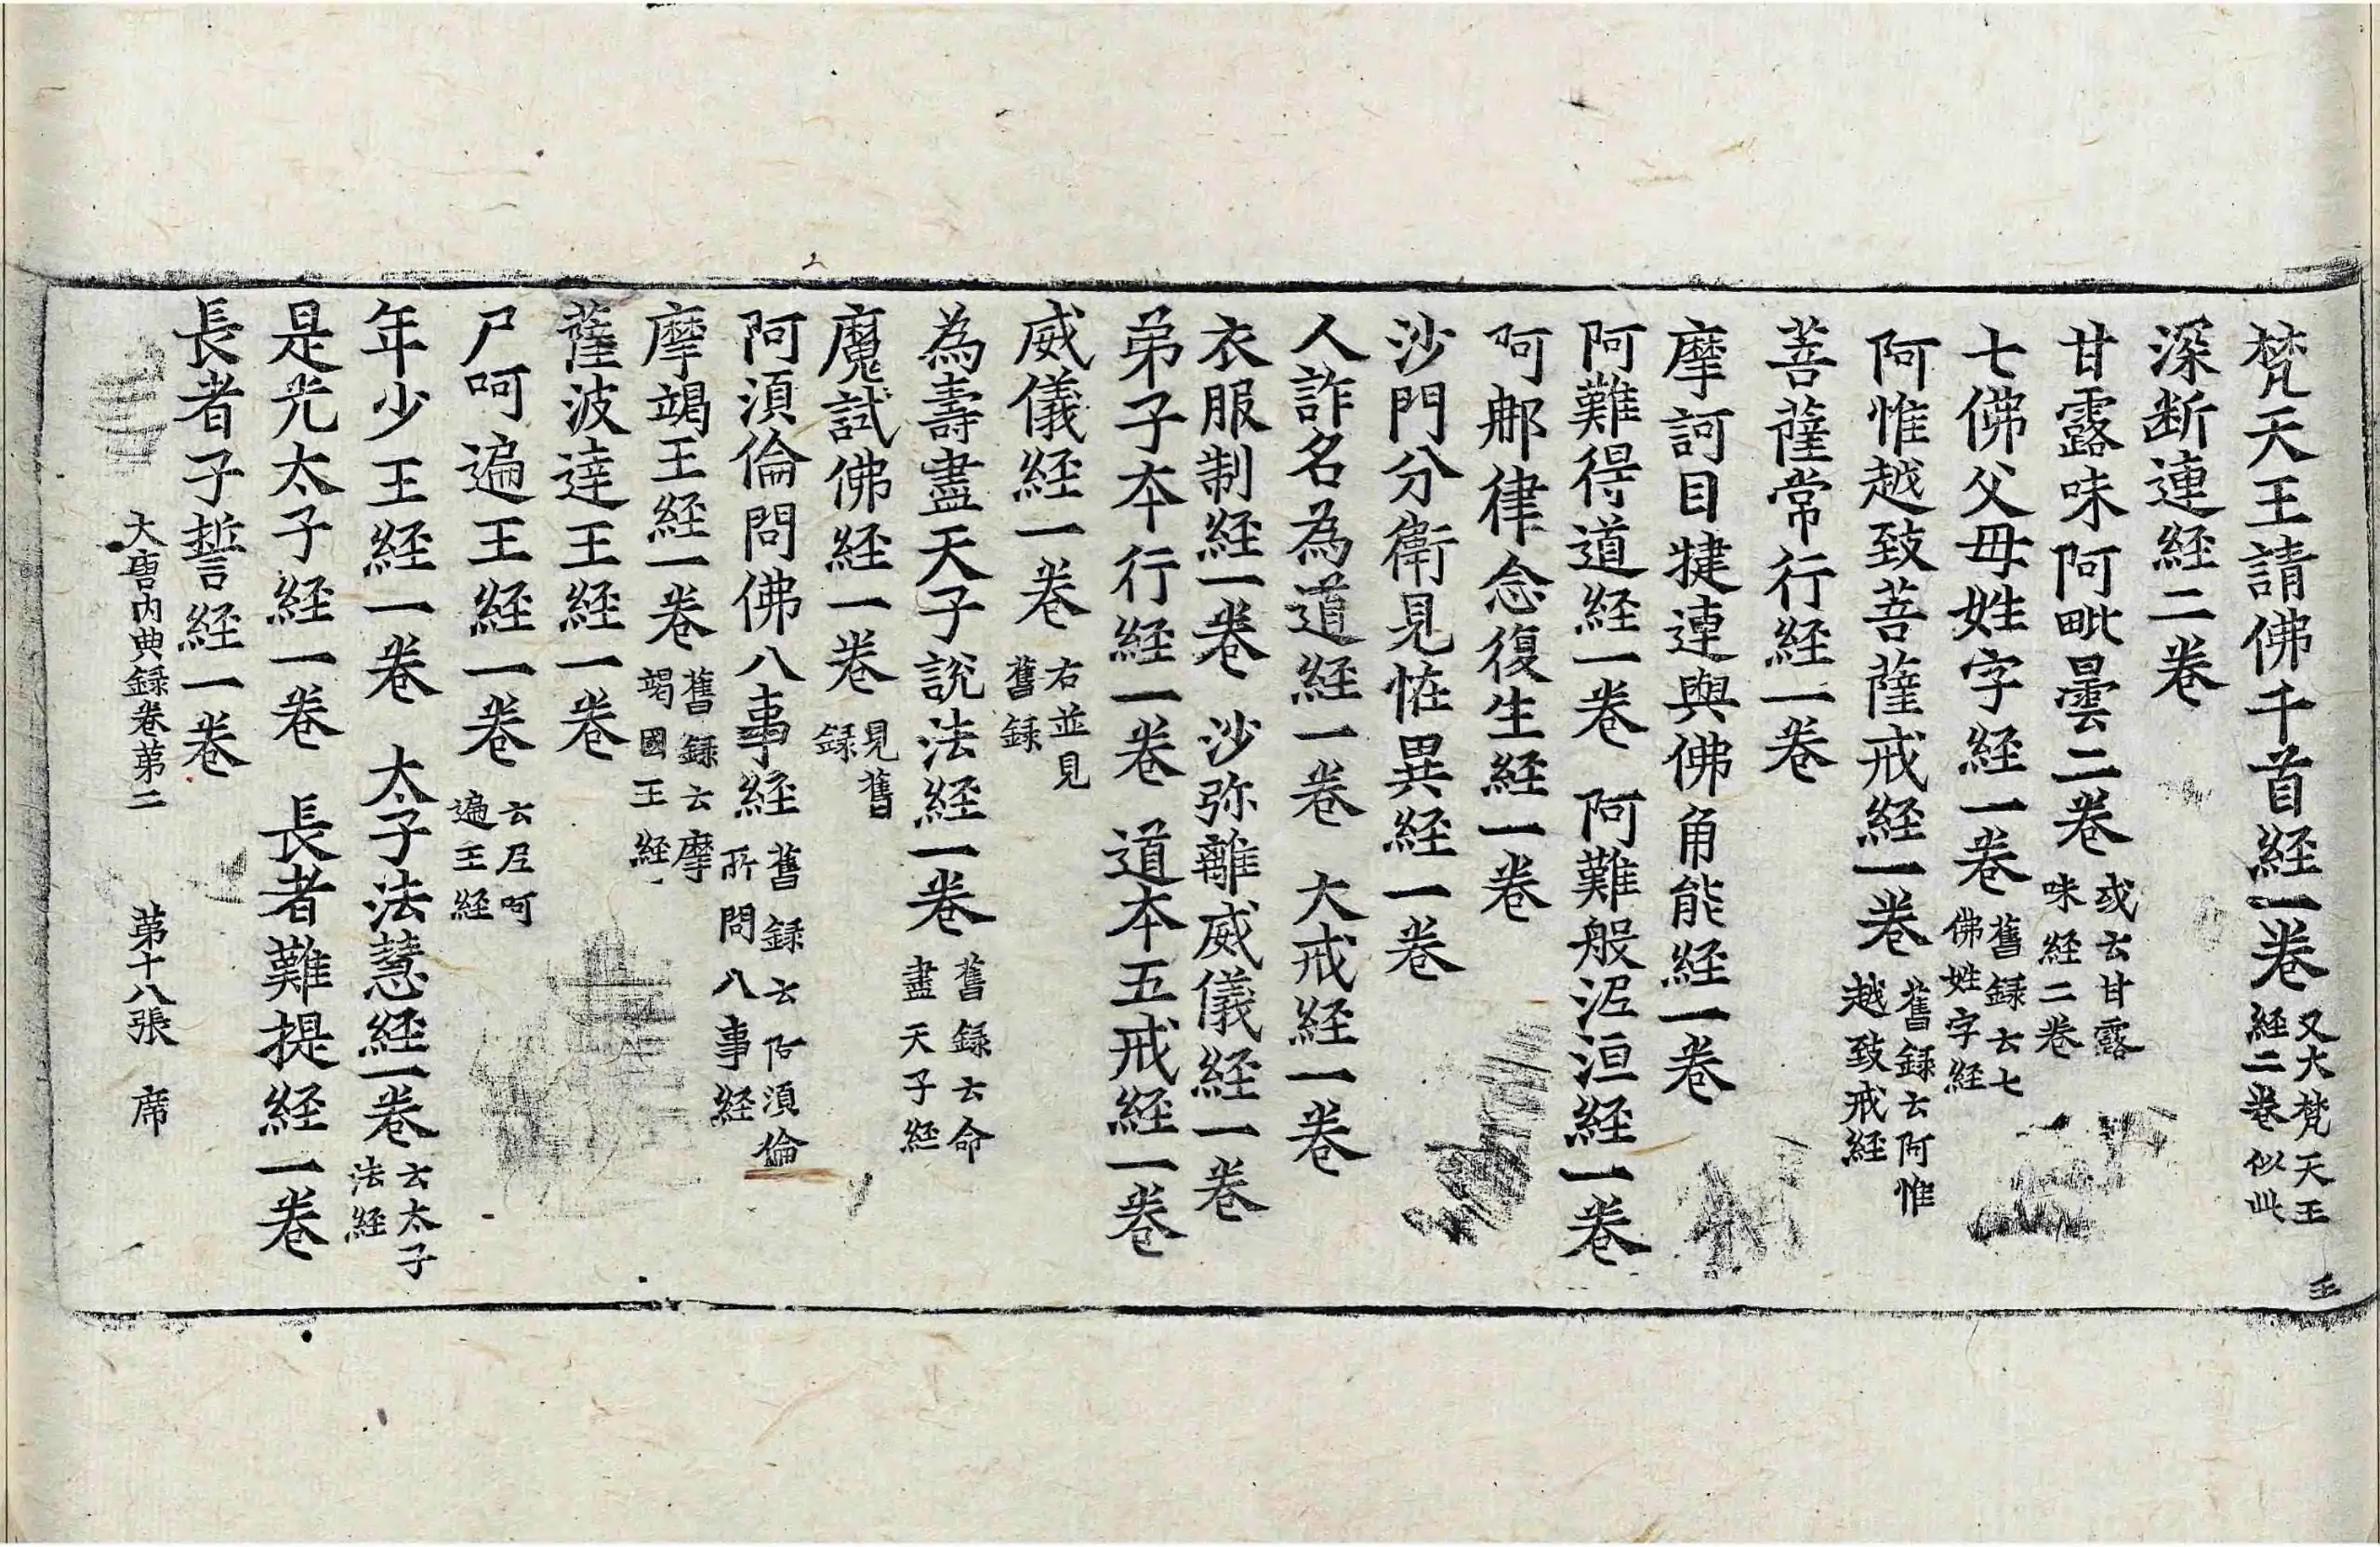 梵天王請佛千首経一卷又大梵天王経二卷似此
深断連経二卷
甘露味阿毗曇二卷或云甘露味経二卷
七佛父母姓字経一卷舊録云七佛姓字経
阿惟越致菩薩戒経一卷舊録云阿惟越致戒経
菩薩常行経一卷
摩訶目揵連與佛角能経一卷
阿難得道経一卷 阿難般泥洹経一卷
阿郍律念復生経一卷
沙門分衛見恠異経一卷
人詐名為道経一卷 大戒経一卷
衣服制経一卷 沙弥離威儀経一卷
弟子夲行経一卷 道夲五戒経一卷
威儀経一卷右並見舊録
為壽盡天子說法経一卷舊録云命盡天子経
魔試佛経一卷見舊録
阿湏倫問佛八事経舊録云阿湏倫所問八事経
摩竭王経一卷舊録云摩竭國王経
薩波達王経一卷
尸呵遍王経一卷云尸呵遍王経
年少王経一卷 太子法慧経一卷云太子法経
是光太子経一卷 長者難提経一卷
長者子誓経一卷
大唐内典録卷第二 第十八張 席